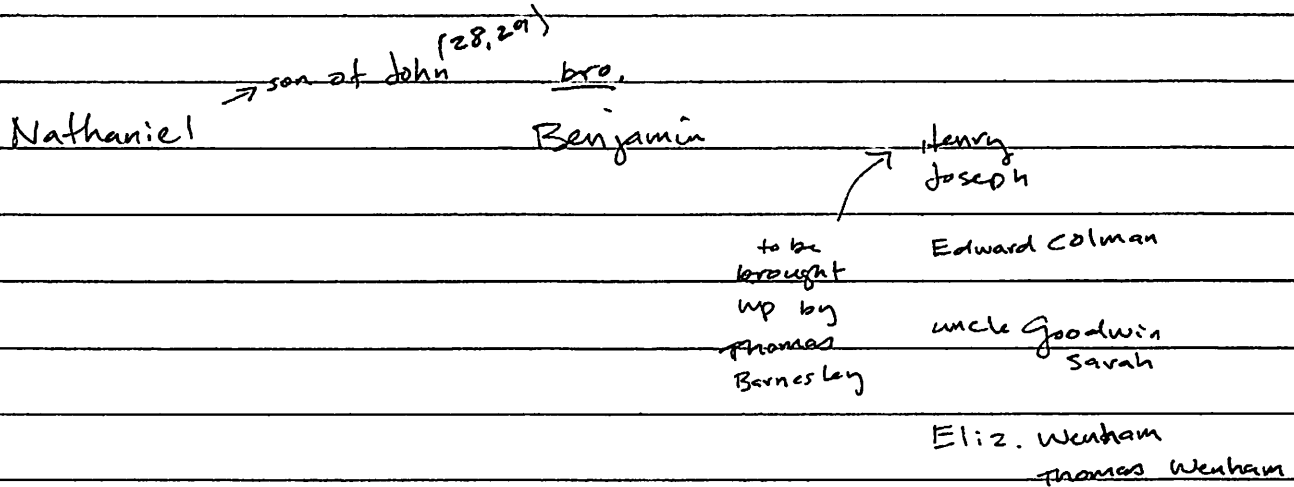 son of John (28, 29)
bro.
Nathaniel
Benjamin
Henry
Joseph
to be
brought
up by
Thomas
Barnesley
Edward Colman
uncle Goodwin
Sarah
Eliz. Wenham
Thomas Wenham